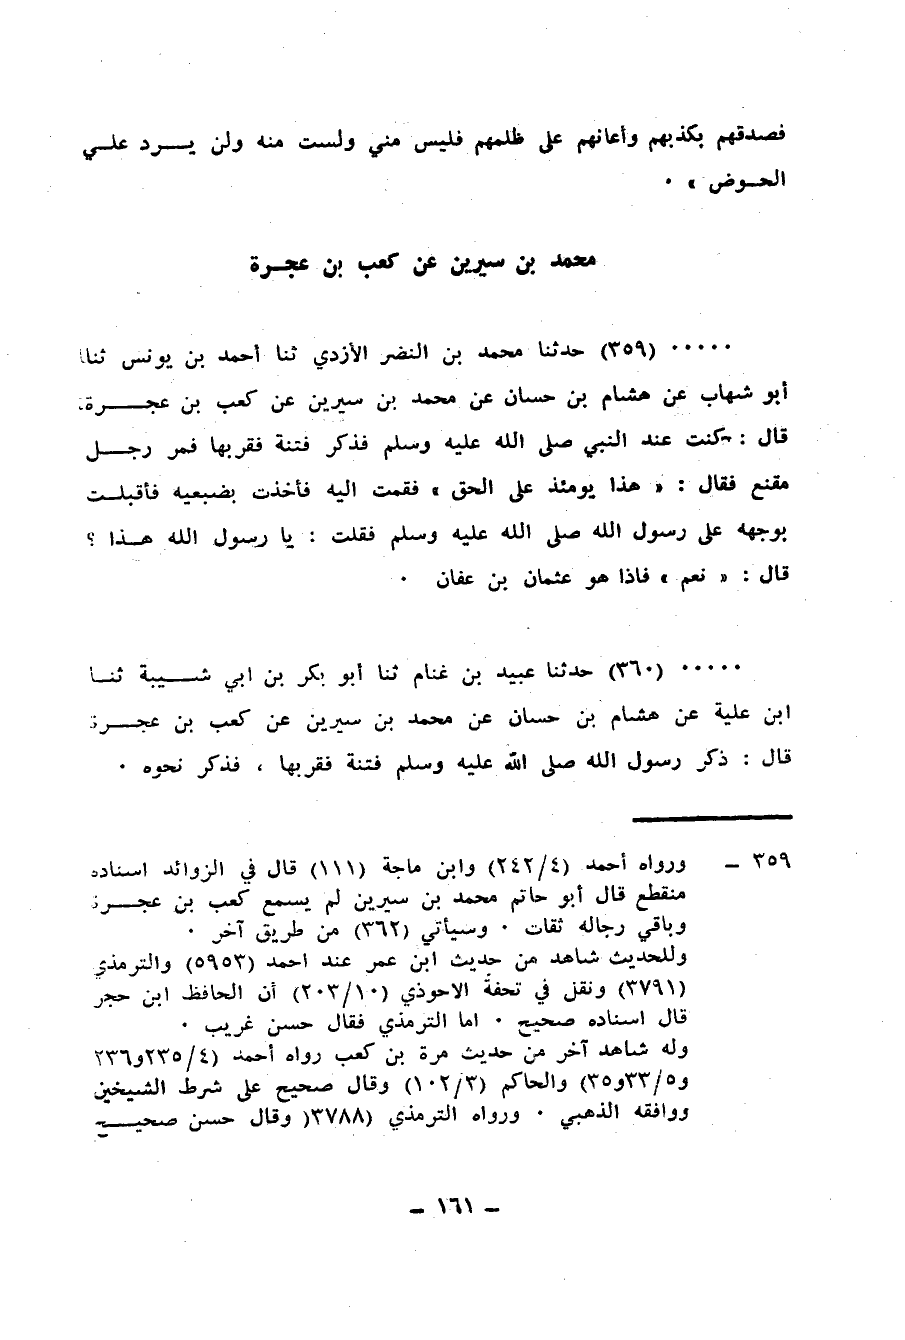 فصدقهم بكذبهم وأعانهم على ظلمهم فليس مني ولست منه ولن يـــرد علـي
الحـوض » ٠
محمد بن سيرين عن كعب بن عجـرة
٠٠٠٠٠ (٣٥٩) حدثنا محمد بن النضر الأزدي ثنا أحمد بن يونس ثنا
أبو شهاب عن هشام بن حسان عن محمد بن سيرين عن كعب بن عجــــرة
قال : كنت عند النبي صلى الله عليه وسلم فذكر فتنة فقربها فمر رجــل
مقنع فقال : « هذا يومئذ على الحق » فقمت اليه فأخذت بضبعيه فأقبلـت
بوجهه على رسول الله صلى الله عليه وسلم فقلت : يا رسول الله هـذا ؟
قال : « نعم » فاذا هو عثمان بن عفان ٠
٠٠٠٠٠ (٣٦٠) حدثنا عبيد بن غنام ثنا أبو بكر بن ابي شـــيبة ثنـا
ابن علية عن هشام بن حسان عن محمد بن سيرين عن كعب بن عجــرة
قال : ذكر رسول الله صلى الله عليه وسلم فتنة فقربها ، فذكر نحوه ٠
٣٥٩ ـ ورواه أحمد (٢٤٢/٤) وابن ماجة (١١١) قال في الزوائد اسناده
منقطع قال أبو حاتم محمد بن سيرين لم يسمع كعب بن عجــرة
وباقي رجاله ثقات ٠ وسيأتي (٣٦٢) من طريق آخر ٠
وللحديث شاهد من حديث ابن عمر عند احمد (٥٩٥٣) والترمذي
(٣٧٩١) ونقل في تحفة الاحوذي (٢٠٣/١٠) أن الحافظ ابن حجر
قال اسناده صحيح ٠ اما الترمذي فقال حسن غريب ٠
وله شاهد آخر من حديث مرة بن كعب رواه أحمد (٢٣٥/٤و٢٣٦
و٣٣/٥و٣٥) والحاكم (١٠٢/٣) وقال صحيح على شرط الشيخين
ووافقه الذهبي ٠ ورواه الترمذي (٣٧٨٨( وقال حسن صحيـــح
ـ ١٦١ ـ